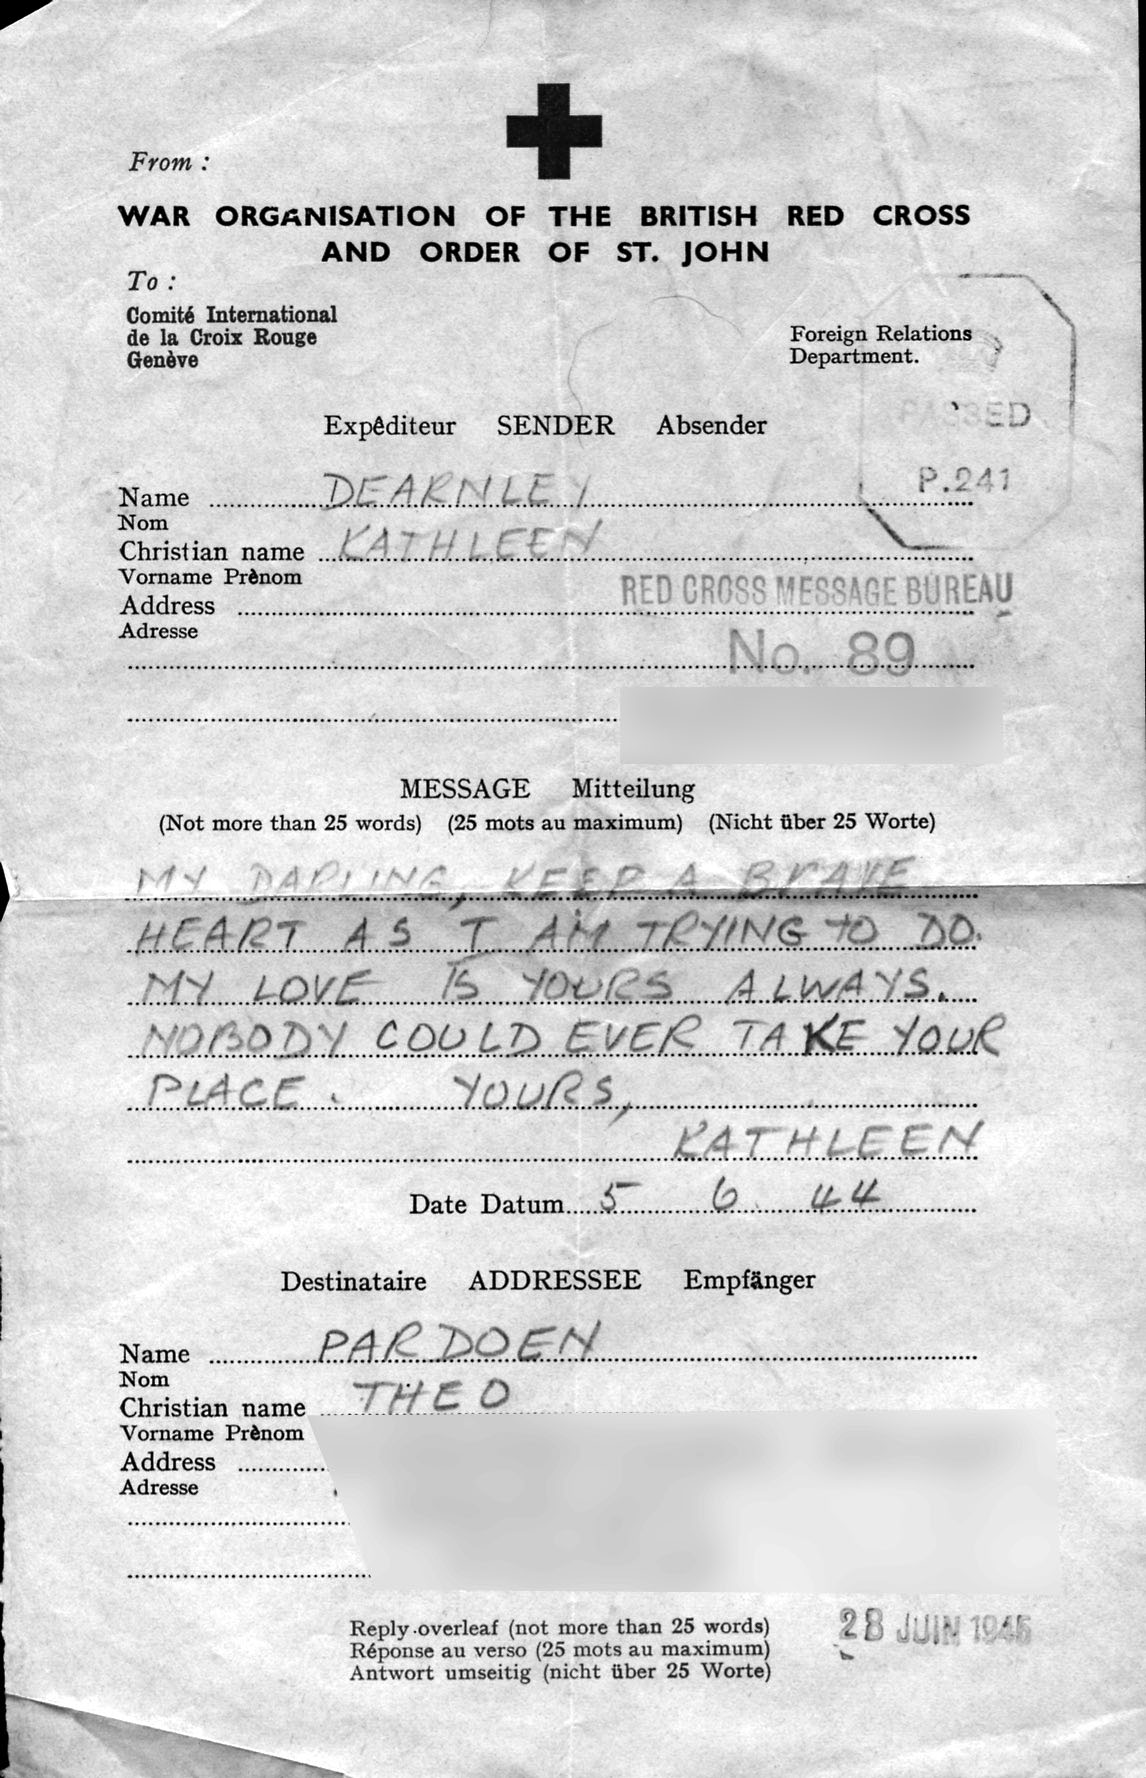 From :
WAR ORGANISATION OF THE BRITISH RED CROSS
AND ORDER OF ST. JOHN
To :
Comité International
de la Croix Rouge
Genève
Foreign Relations
Department.
PASSED
P.241
Expéditeur SENDER Absender
Name DEARNLEY
Nom
Christian name KATHLEEN
Vorname Prènom
Address
Adresse
RED CROSS MESSAGE BUREAU
No. 89
MESSAGE Mitteilung
(Not more than 25 words) (25 mots au maximum) (Nicht über 25 Worte)
MY DARLING, KEEP A BRAVE
HEART AS I AM TRYING TO DO.
MY LOVE IS YOURS ALWAYS.
NOBODY COULD EVER TAKE YOUR
PLACE. YOURS,
KATHLEEN
Date Datum 5 6. 44
Destinataire ADDRESSEE Empfänger
Name PARDOEN
Nom
Christian name THEO
Vorname Prènom
Address
Adresse
Reply overleaf (not more than 25 words)
Réponse au verso (25 mots au maximum)
Antwort umseitig (nicht über 25 Worte)
28 JUIN 1945